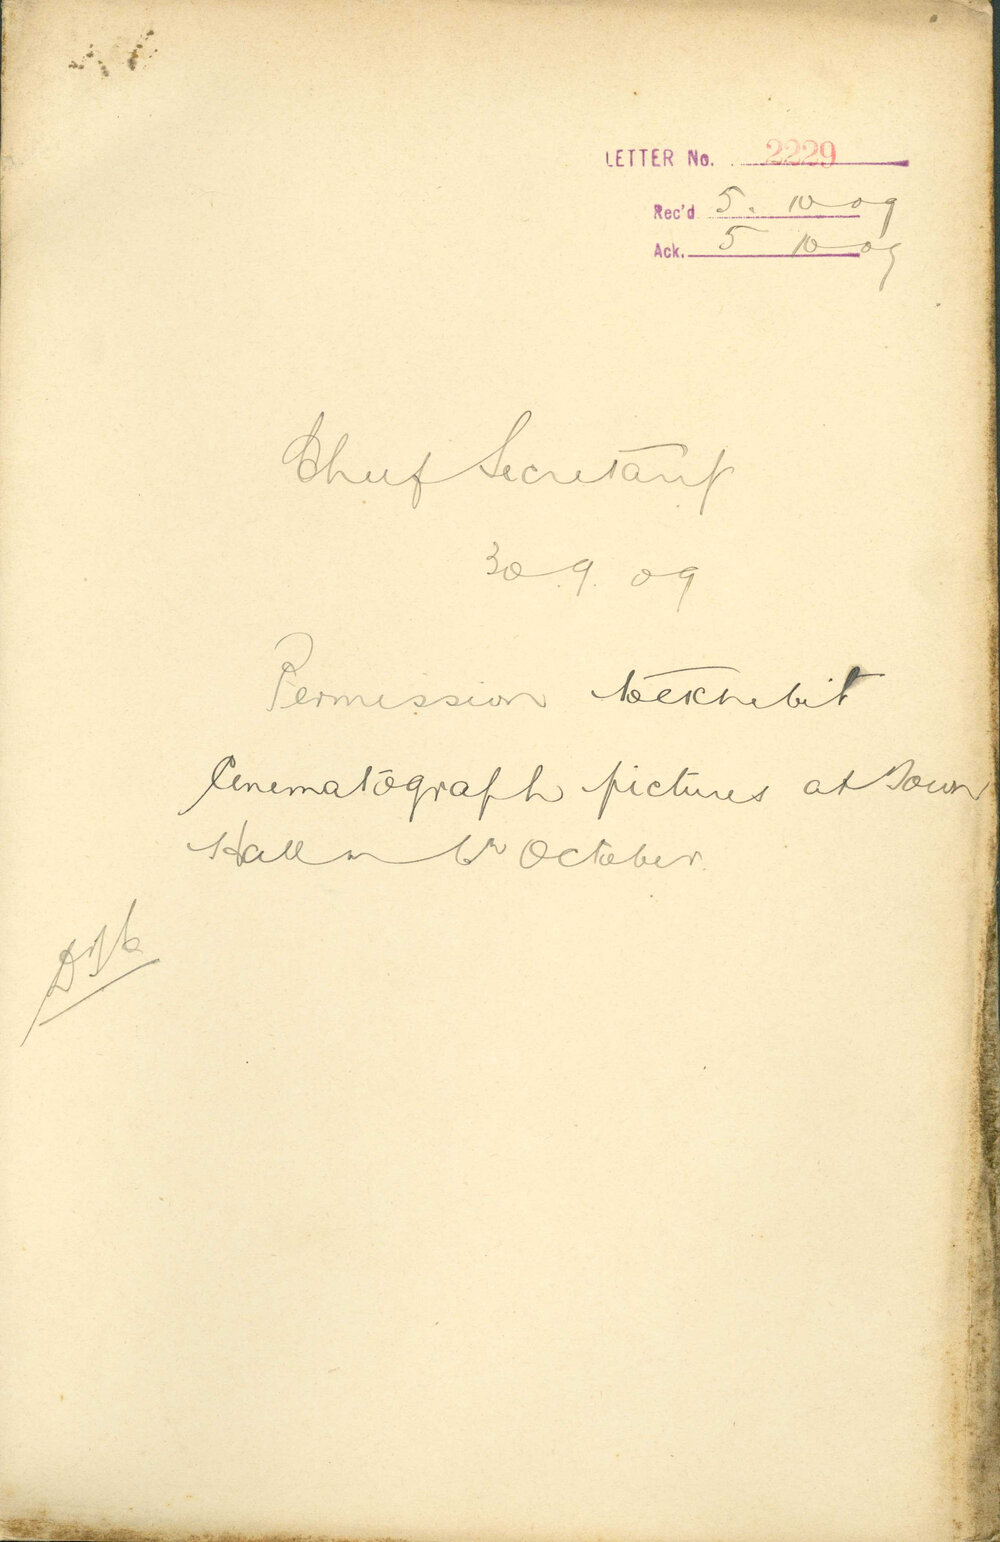 LETTER No. 2229
Rec'd 5. 10 09
Ack. 5 10 09
Chief Secretary
30.9.09
Permission to exhibit
Cinematograph pictures at Town
Hall on October.